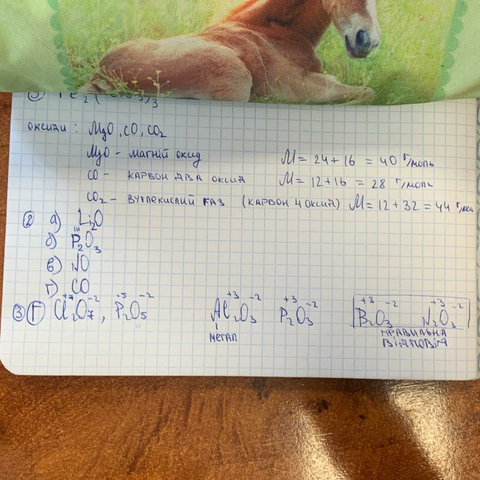 оксиди: MgO, CO, CO₂
MgO - магній оксид M = 24 + 16 = 40 г/моль
CO - карбон два оксид M = 12 + 16 = 28 г/моль
CO₂ - вуглекислий газ (карбон 4 оксид) M = 12 + 32 = 44 г/моль
② а) Li₂O
б) P₂O₃
в) NO
г) CO
③ Г Cl₂⁺⁷O₇⁻², P₂⁺⁵O₅⁻² Al₂⁺³O₃⁻² P₂⁺³O₃⁻² B₂⁺³O₃⁻² N₂⁺³O₃⁻²
метал правильна
відповідь